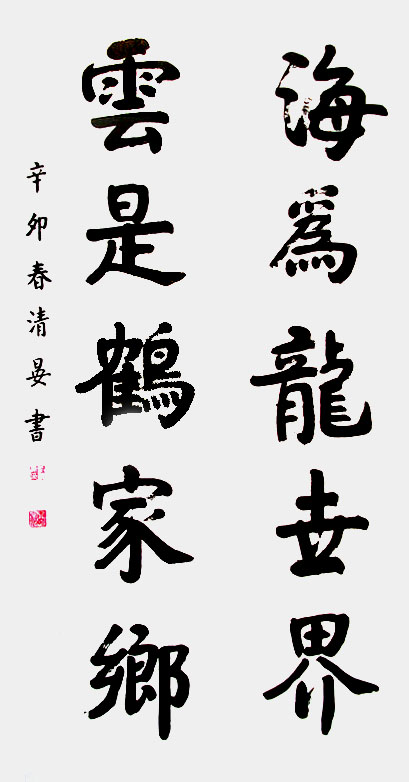 海為龍世界
雲是鶴家鄉
辛卯春清晏書